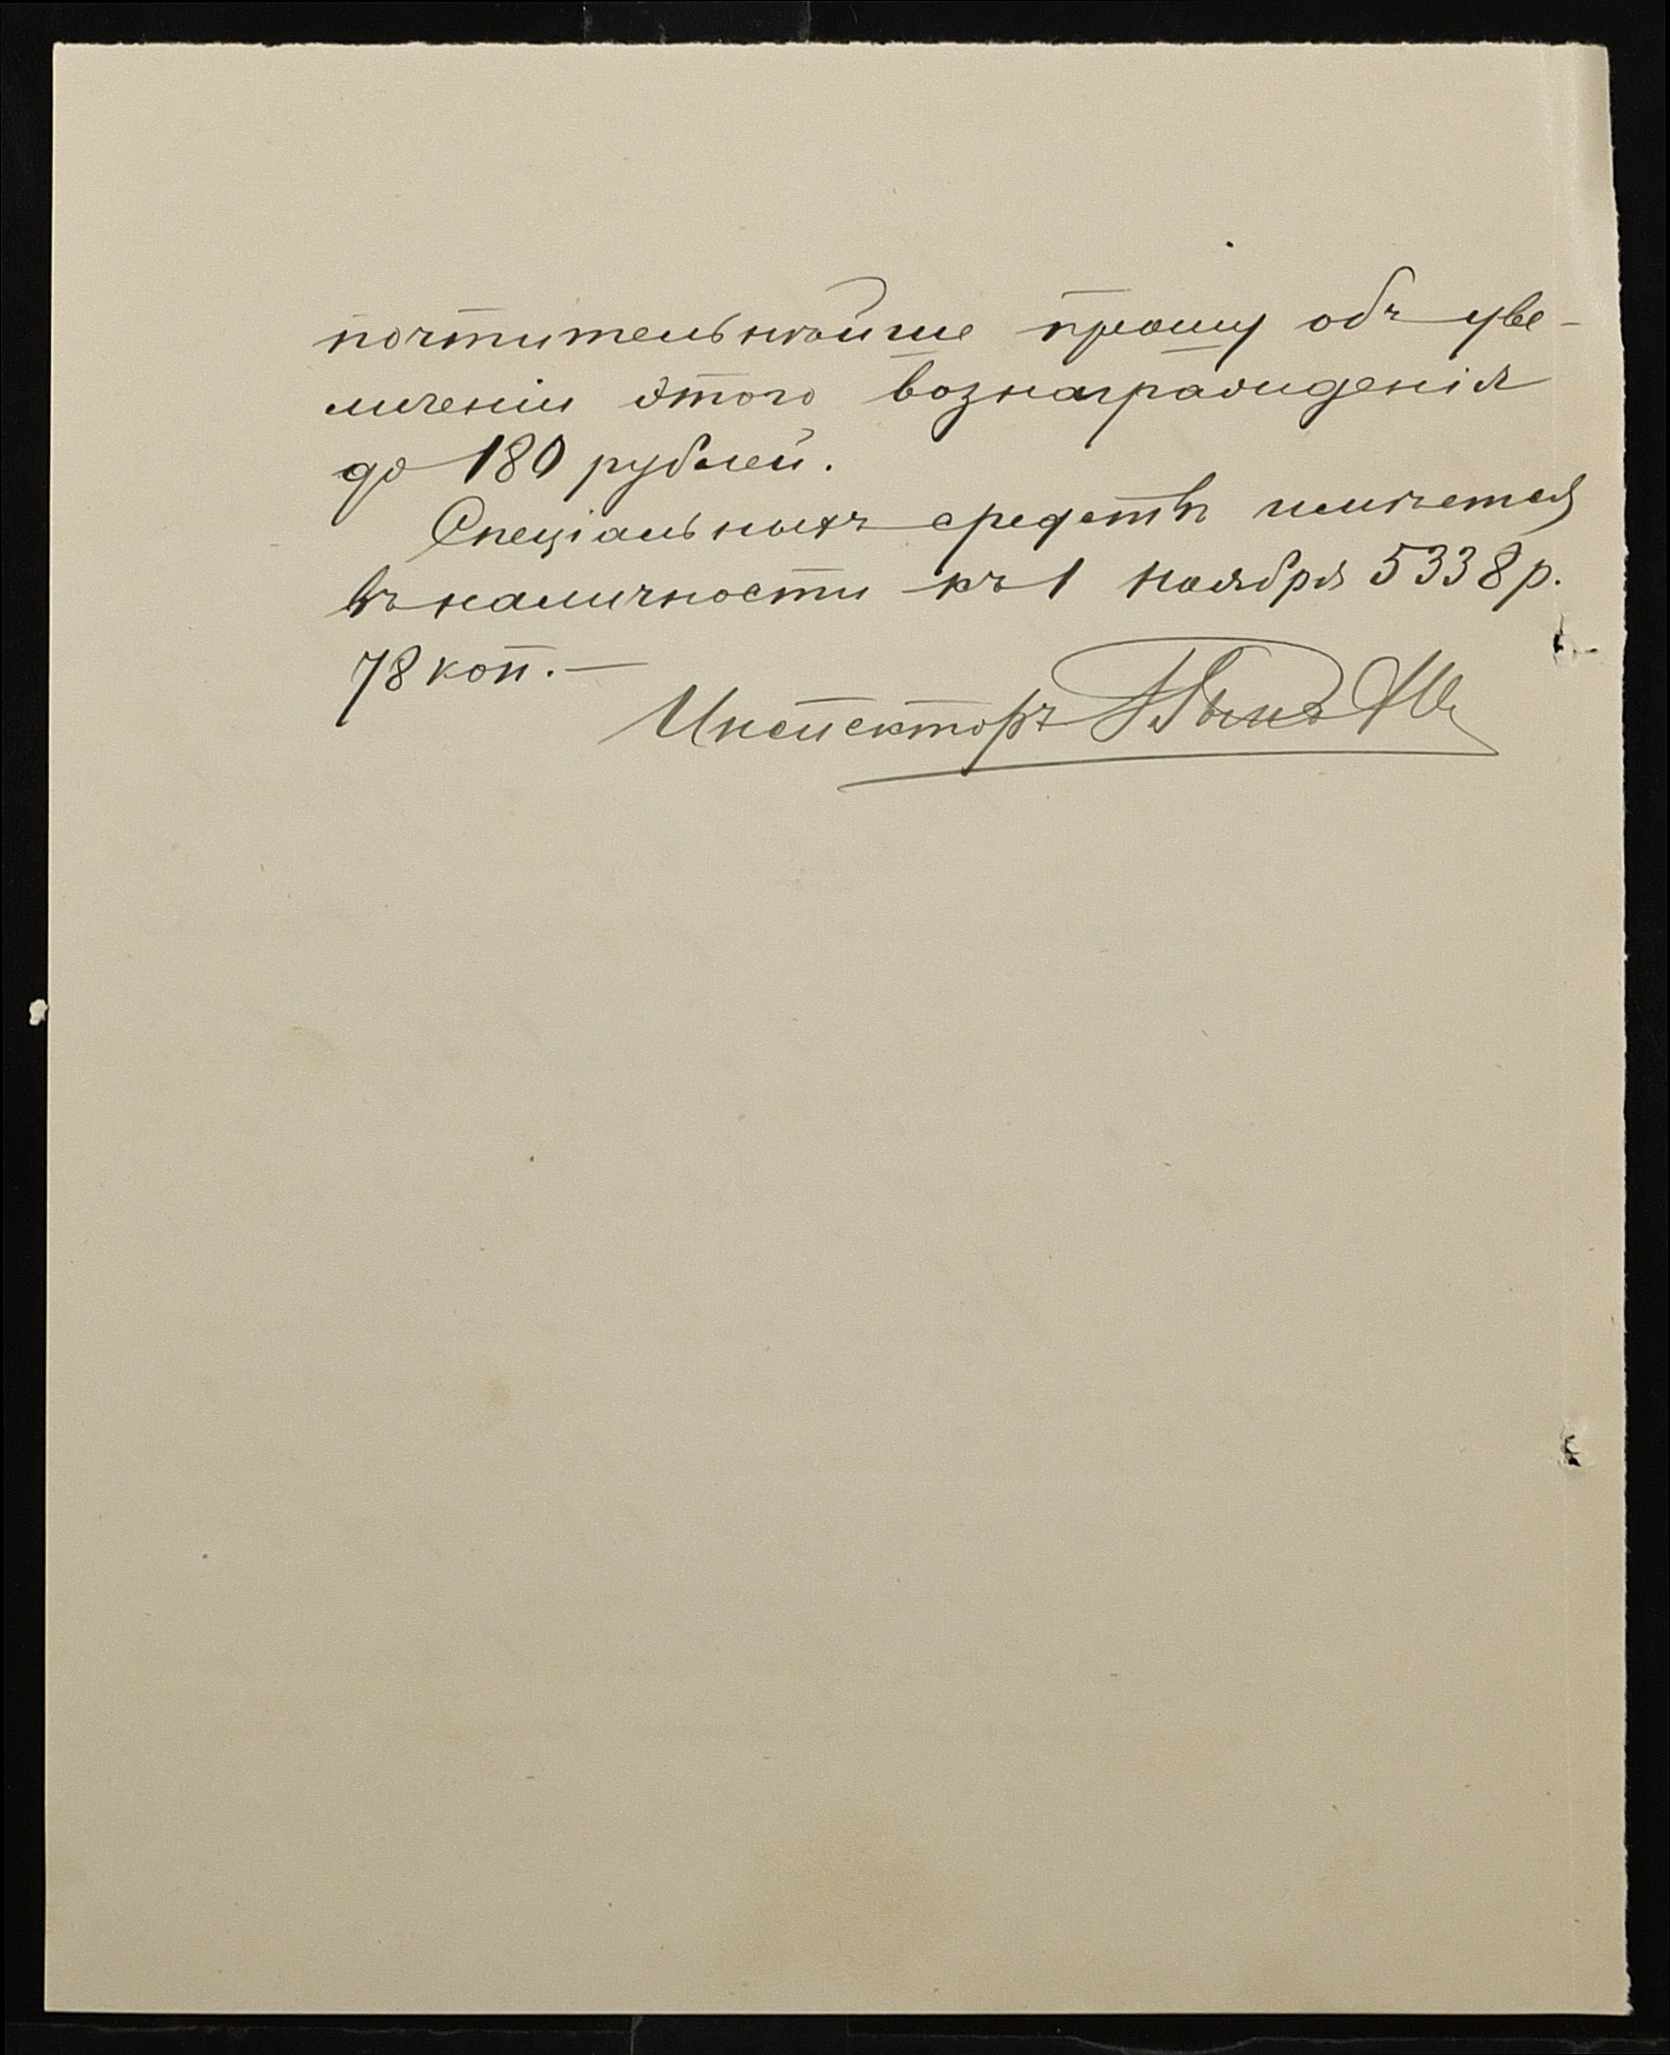 почтительнѣйше прошу объ уве-
личеніи этого вознагражденія
до 180 рублей.
Спеціальныхъ средствъ имѣется
въ наличности къ 1 ноября 5338 р.
78 коп. —
Инспекторъ